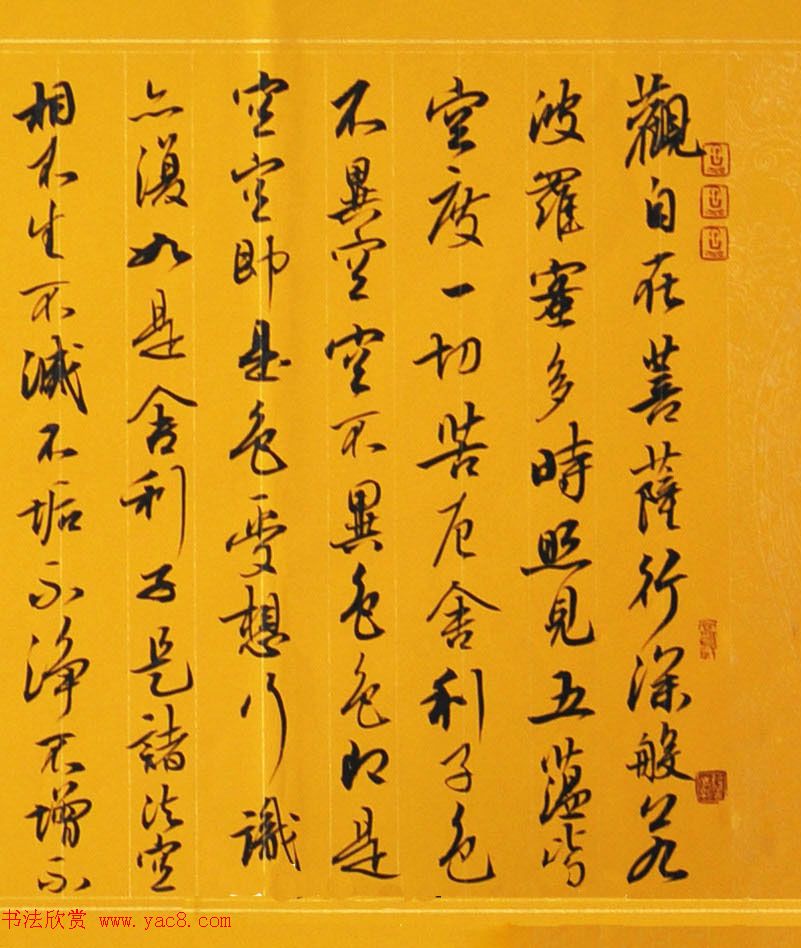 觀自在菩薩行深般若
波羅蜜多時照見五蘊皆
空度一切苦厄舍利子色
不異空空不異色色即是
空空即是色受想行識
亦復如是舍利子是諸法空
相不生不滅不垢不淨不增不
书法欣赏 www.yac8.com